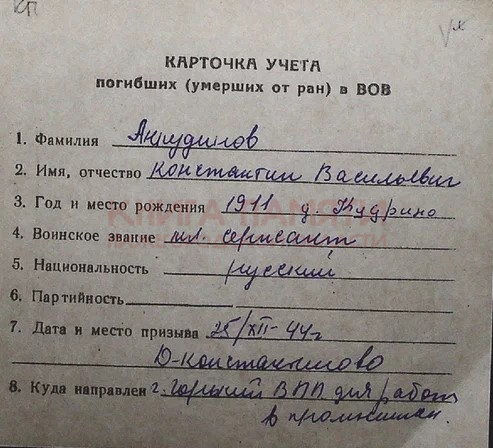 КП
КАРТОЧКА УЧЕТА
погибших (умерших от ран) в ВОВ
1. Фамилия Анцудинов
2. Имя, отчество Константин Васильевич
3. Год и место рождения 1911 д. Кудрино
4. Воинское звание мл. сержант
5. Национальность русский
6. Партийность
7. Дата и место призыва 25/XII-44г
Д-Константиново
8. Куда направлен г. Горький ВПП для работ
в промышлен.